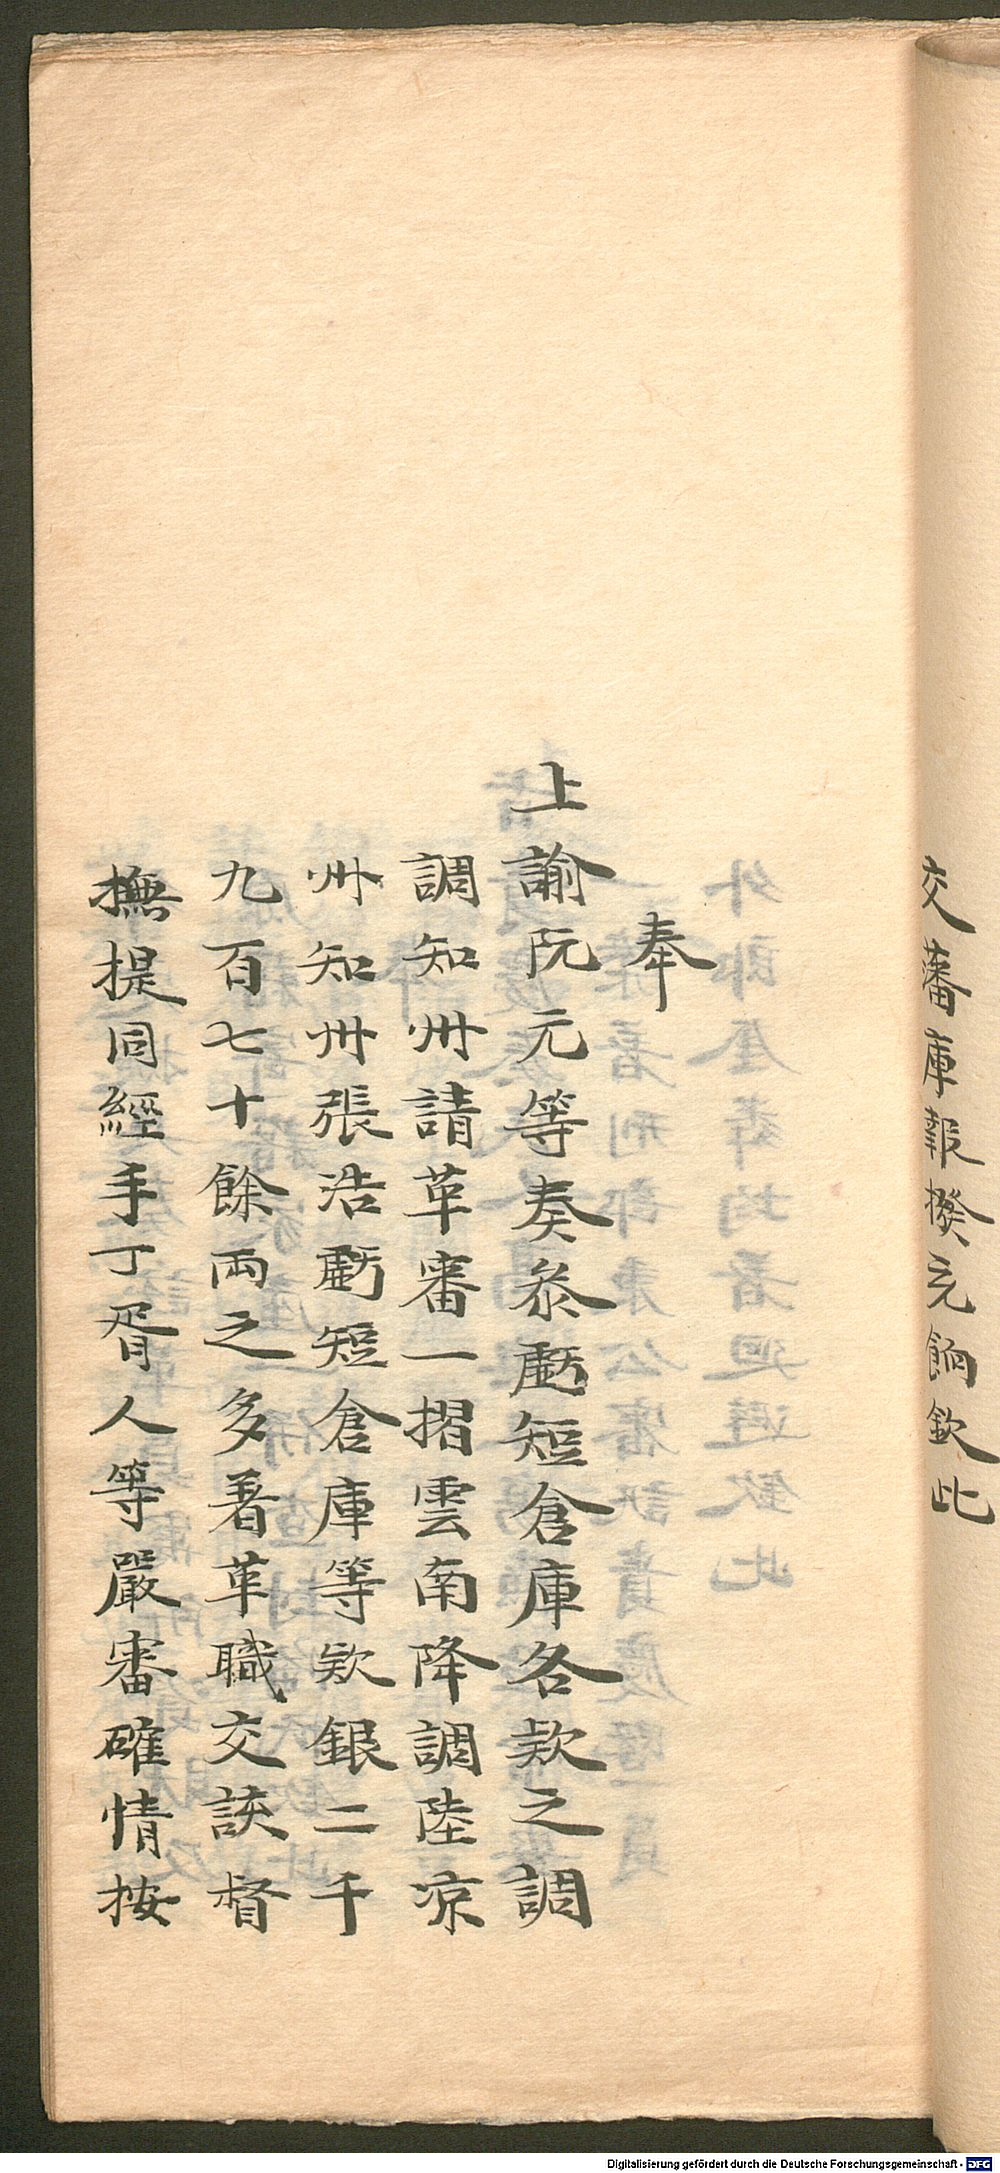 交藩庫報撥充餉欽此
奉
上諭阮元等奏叅虧短倉庫各欵之調
調知州請革審一摺雲南降調陸凉
州知州張浩虧短倉庫等欵銀二千
九百七十餘両之多著革職交該督
撫提同經手丁胥人等嚴審確情按
Digitalisierung gefördert durch die Deutsche Forschungsgemeinschaft - DFG